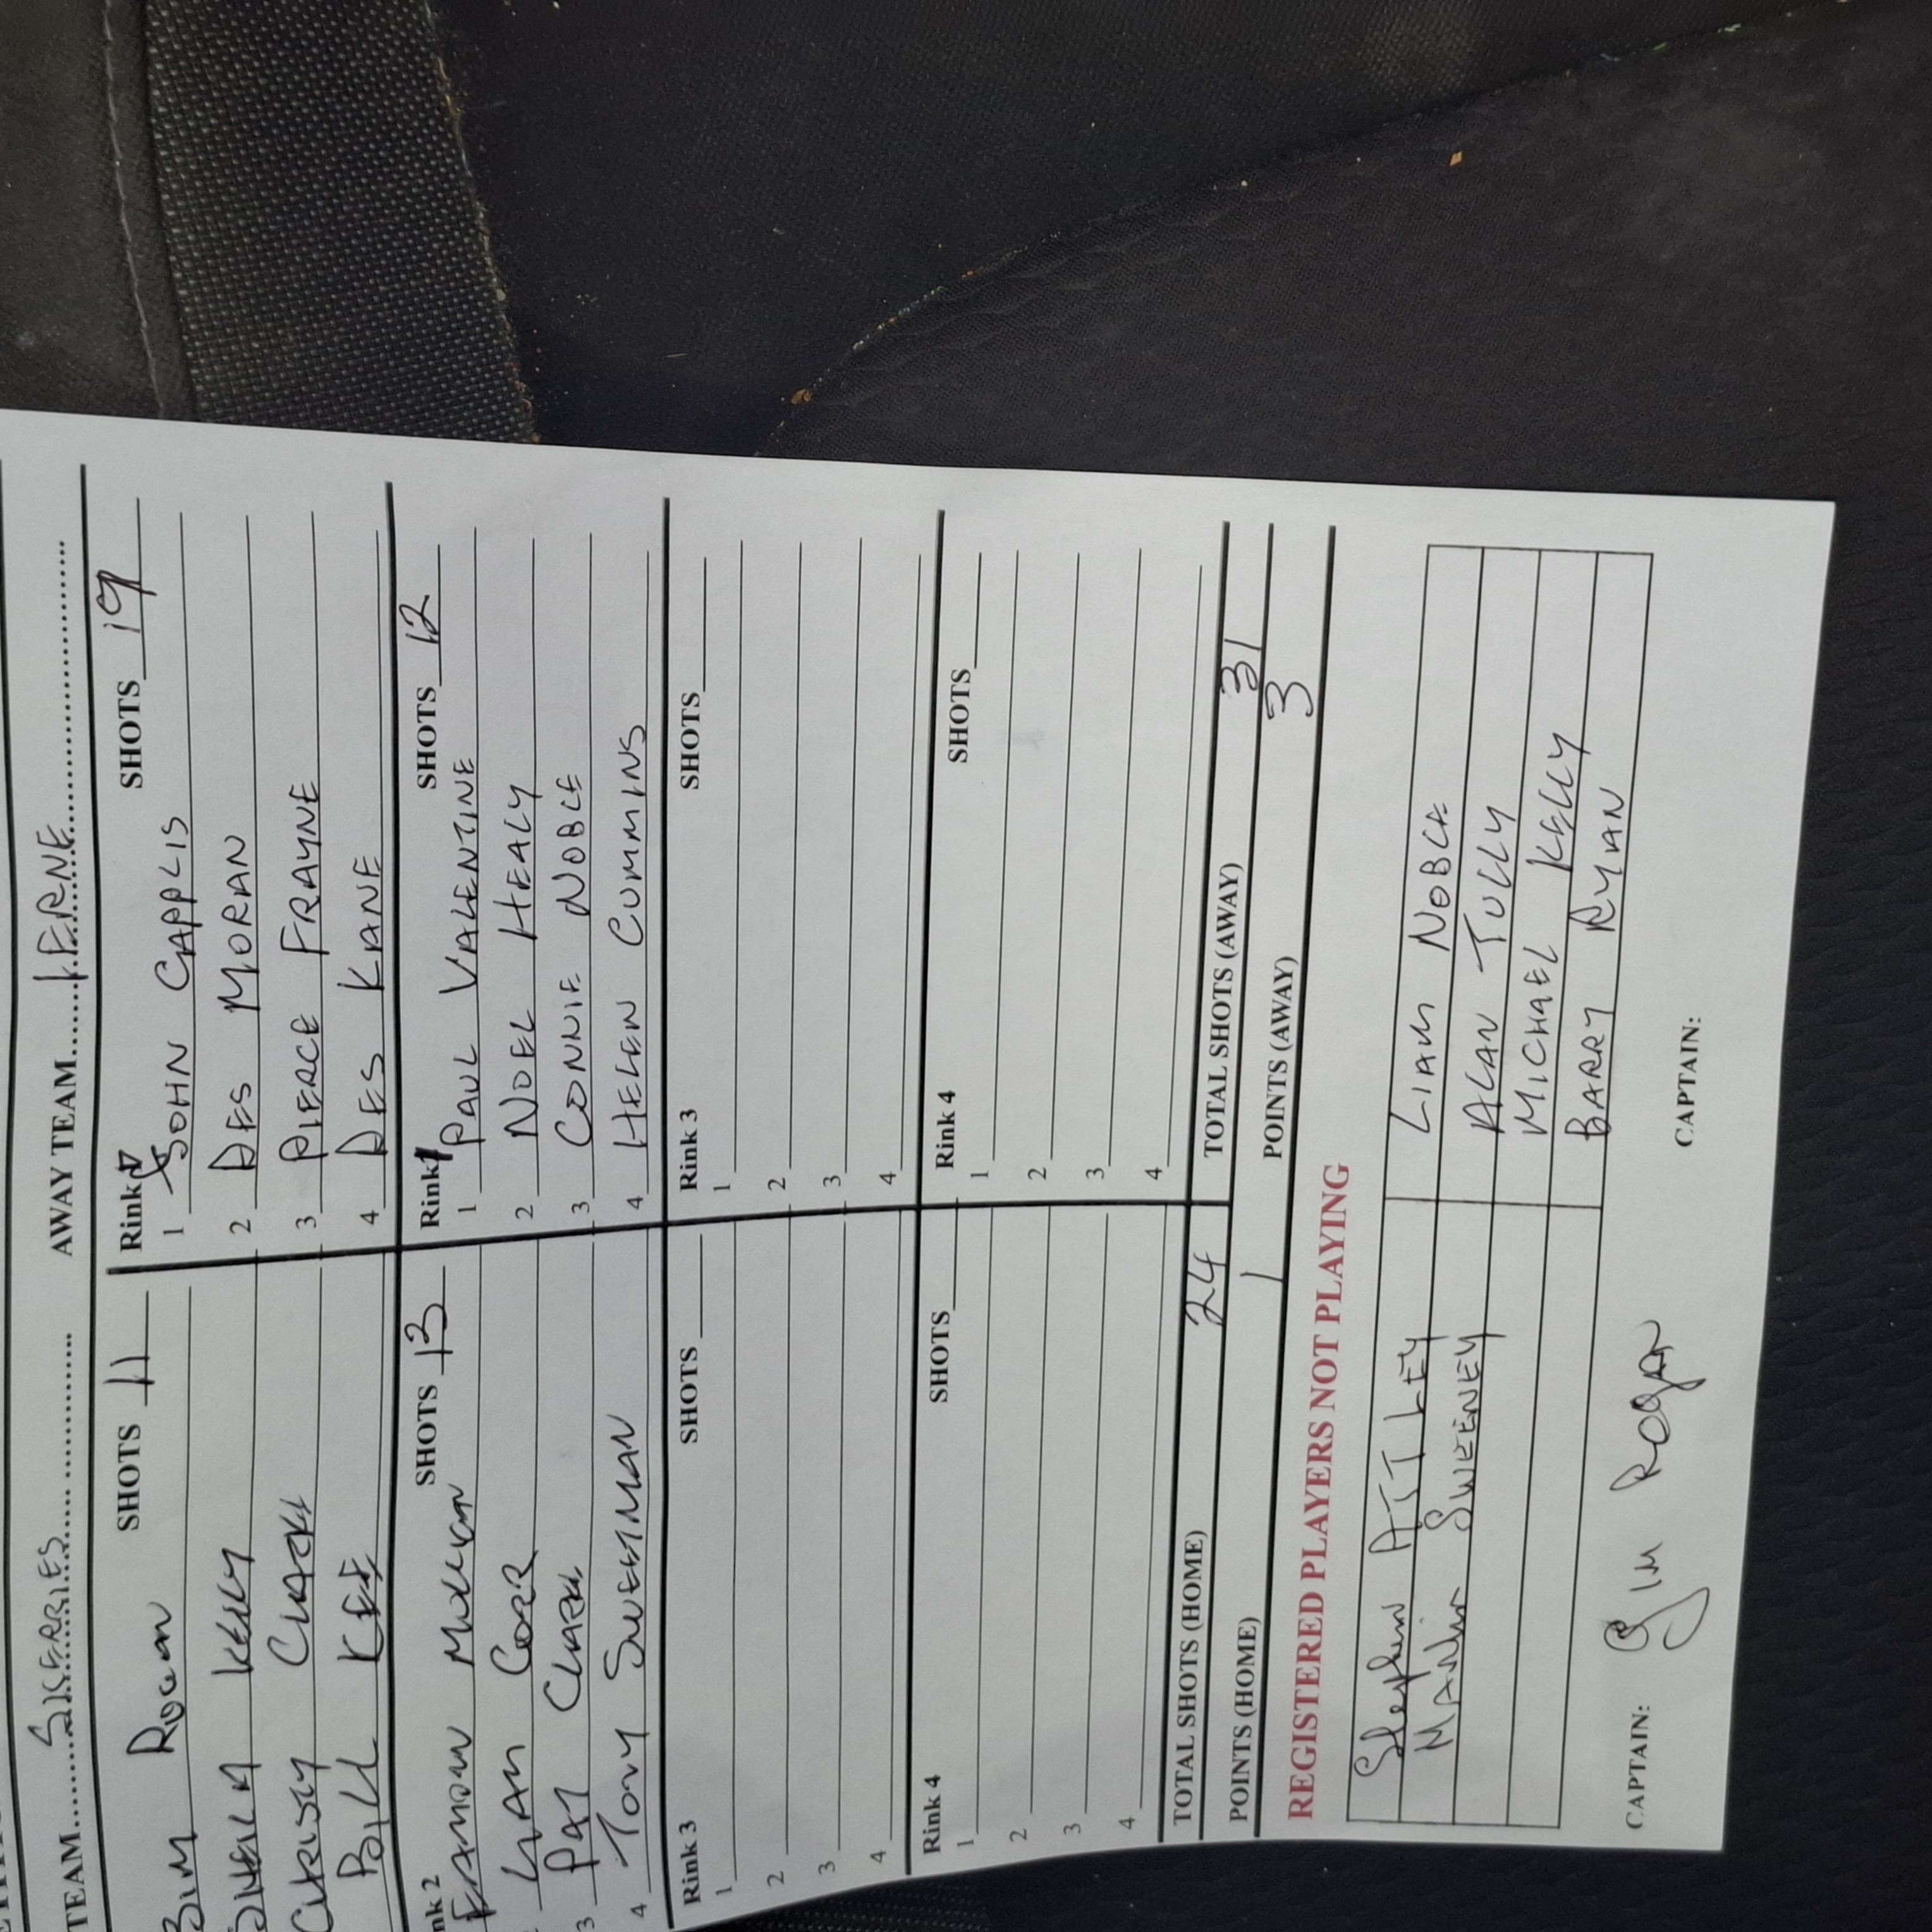 TEAM SKERRIES AWAY TEAM I.E.R.N.E
SHOTS 11 Rink SHOTS 19
Rogan 1 JOHN CAPPLIS
SHEILA KELLY 2 DES MORAN
CHRISTY CLARKE 3 PIERCE FRAYNE
BILL KEE 4 DES KANE
nk 2 SHOTS 13 Rink SHOTS 12
EAMONN 1 PAUL VALENTINE
2 NOEL HEALY
3 PAT CLARKE 3 CONNIE NOBLE
4 TONY SWEETMAN 4 HELEN CUMMINS
Rink 3 SHOTS Rink 3 SHOTS
1 1
2 2
3 3
4 4
Rink 4 SHOTS Rink 4 SHOTS
1 1
2 2
3 3
4 4
TOTAL SHOTS (HOME) 24 TOTAL SHOTS (AWAY) 31
POINTS (HOME) 1 POINTS (AWAY) 3
REGISTERED PLAYERS NOT PLAYING
Stephen ATTLEY LIAM NOBLE
MARTIN SWEENEY ALAN TULLY
MICHAEL KELLY
BARRY RYAN
CAPTAIN: Jim Rogan CAPTAIN: